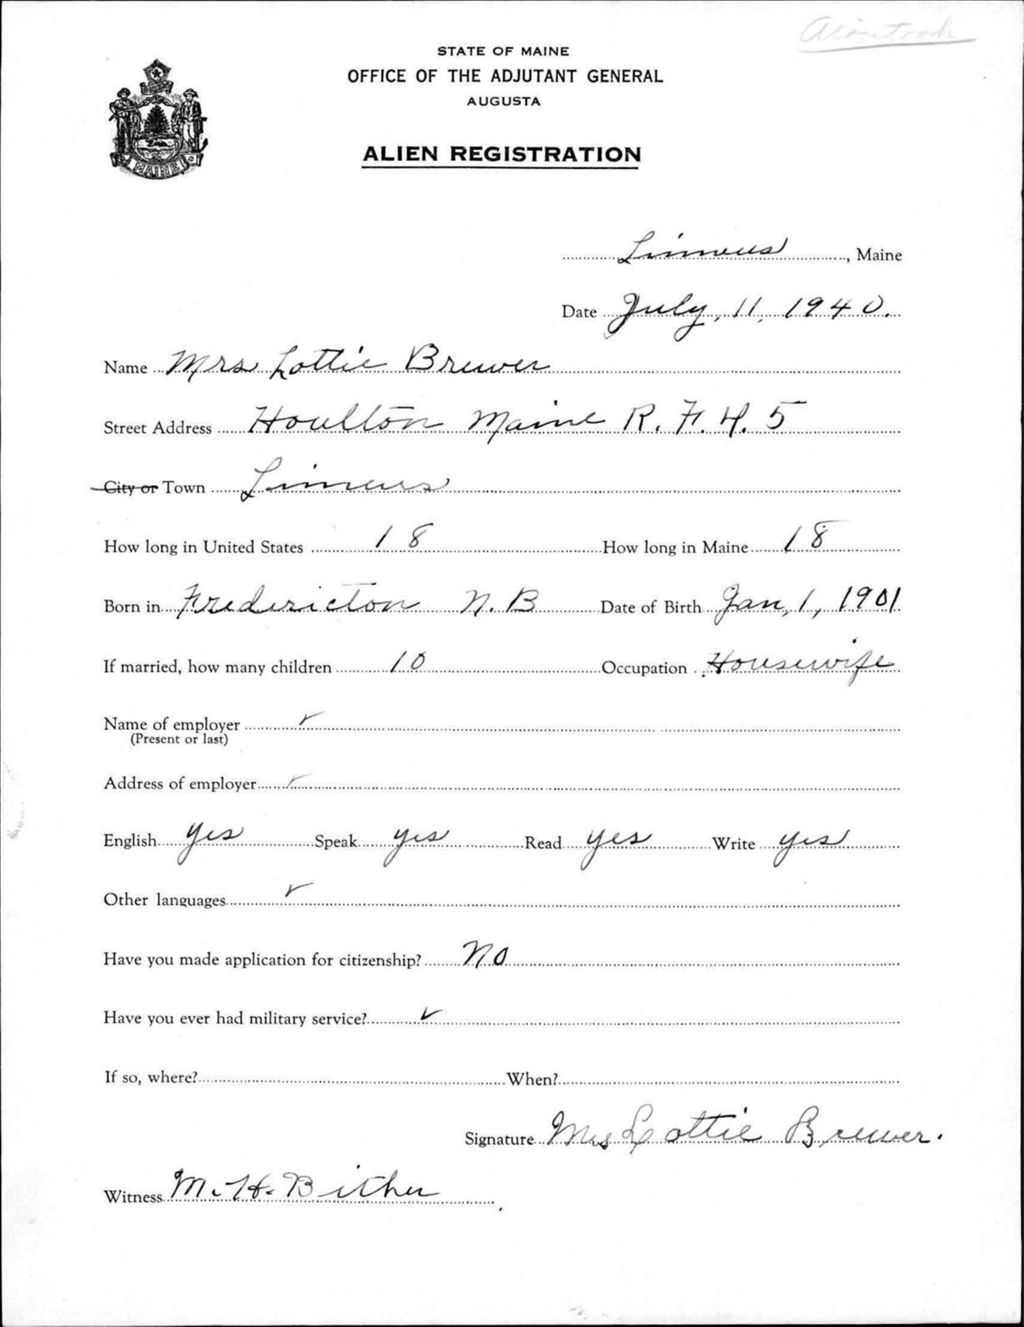 Aroostook
STATE OF MAINE
OFFICE OF THE ADJUTANT GENERAL
AUGUSTA
ALIEN REGISTRATION
MAINE
Linneus, Maine
Date July, 11, 1940.
Name Mrs Lottie Brewer
Street Address Houlton Maine R. F. H. 5
City or Town Linneus
How long in United States 18 How long in Maine 18
Born in Fredericton N. B Date of Birth Jan, 1, 1901
If married, how many children 10 Occupation Housewife
Name of employer ✓
(Present or last)
Address of employer ✓
English yes Speak yes Read yes Write yes
Other languages ✓
Have you made application for citizenship? No
Have you ever had military service? ✓
If so, where? When?
Signature Mrs Lottie Brewer.
Witness M. H. Bither